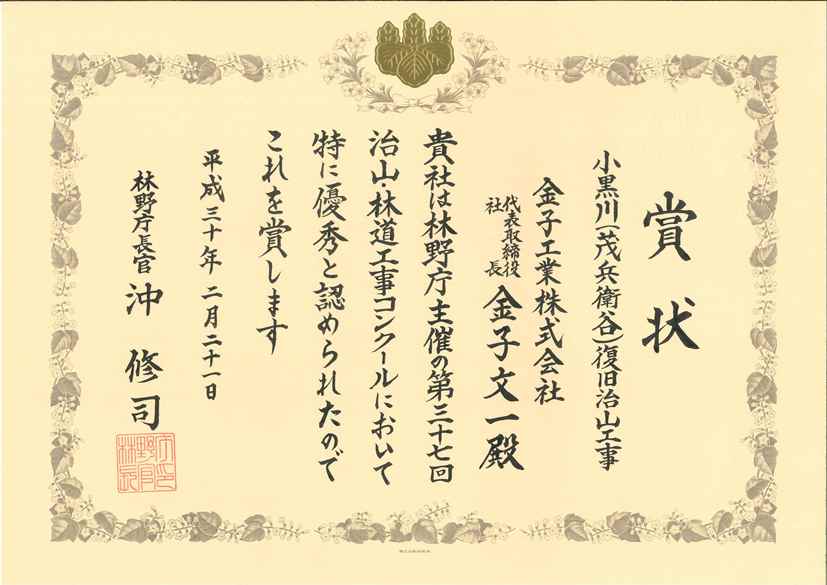 賞状
小黒川(茂兵衛谷)復旧治山工事
金子工業株式会社
代表取締役
社長
金子文一殿
貴社は林野庁主催の第三十七回
治山・林道工事コンクールにおいて
特に優秀と認められたので
これを賞します
平成三十年二月二十一日
林野庁長官 沖修司